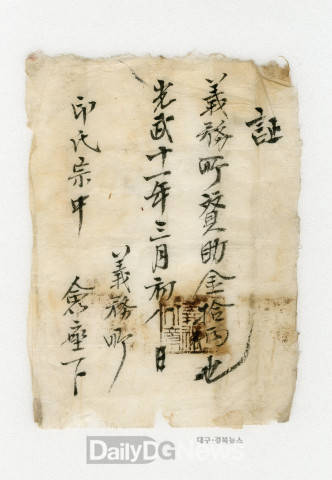 証
義務所賛助金拾両也
光武十一年三月初八日
義務所
印氏宗中
僉座下
대구·경북뉴스
DailyDG News